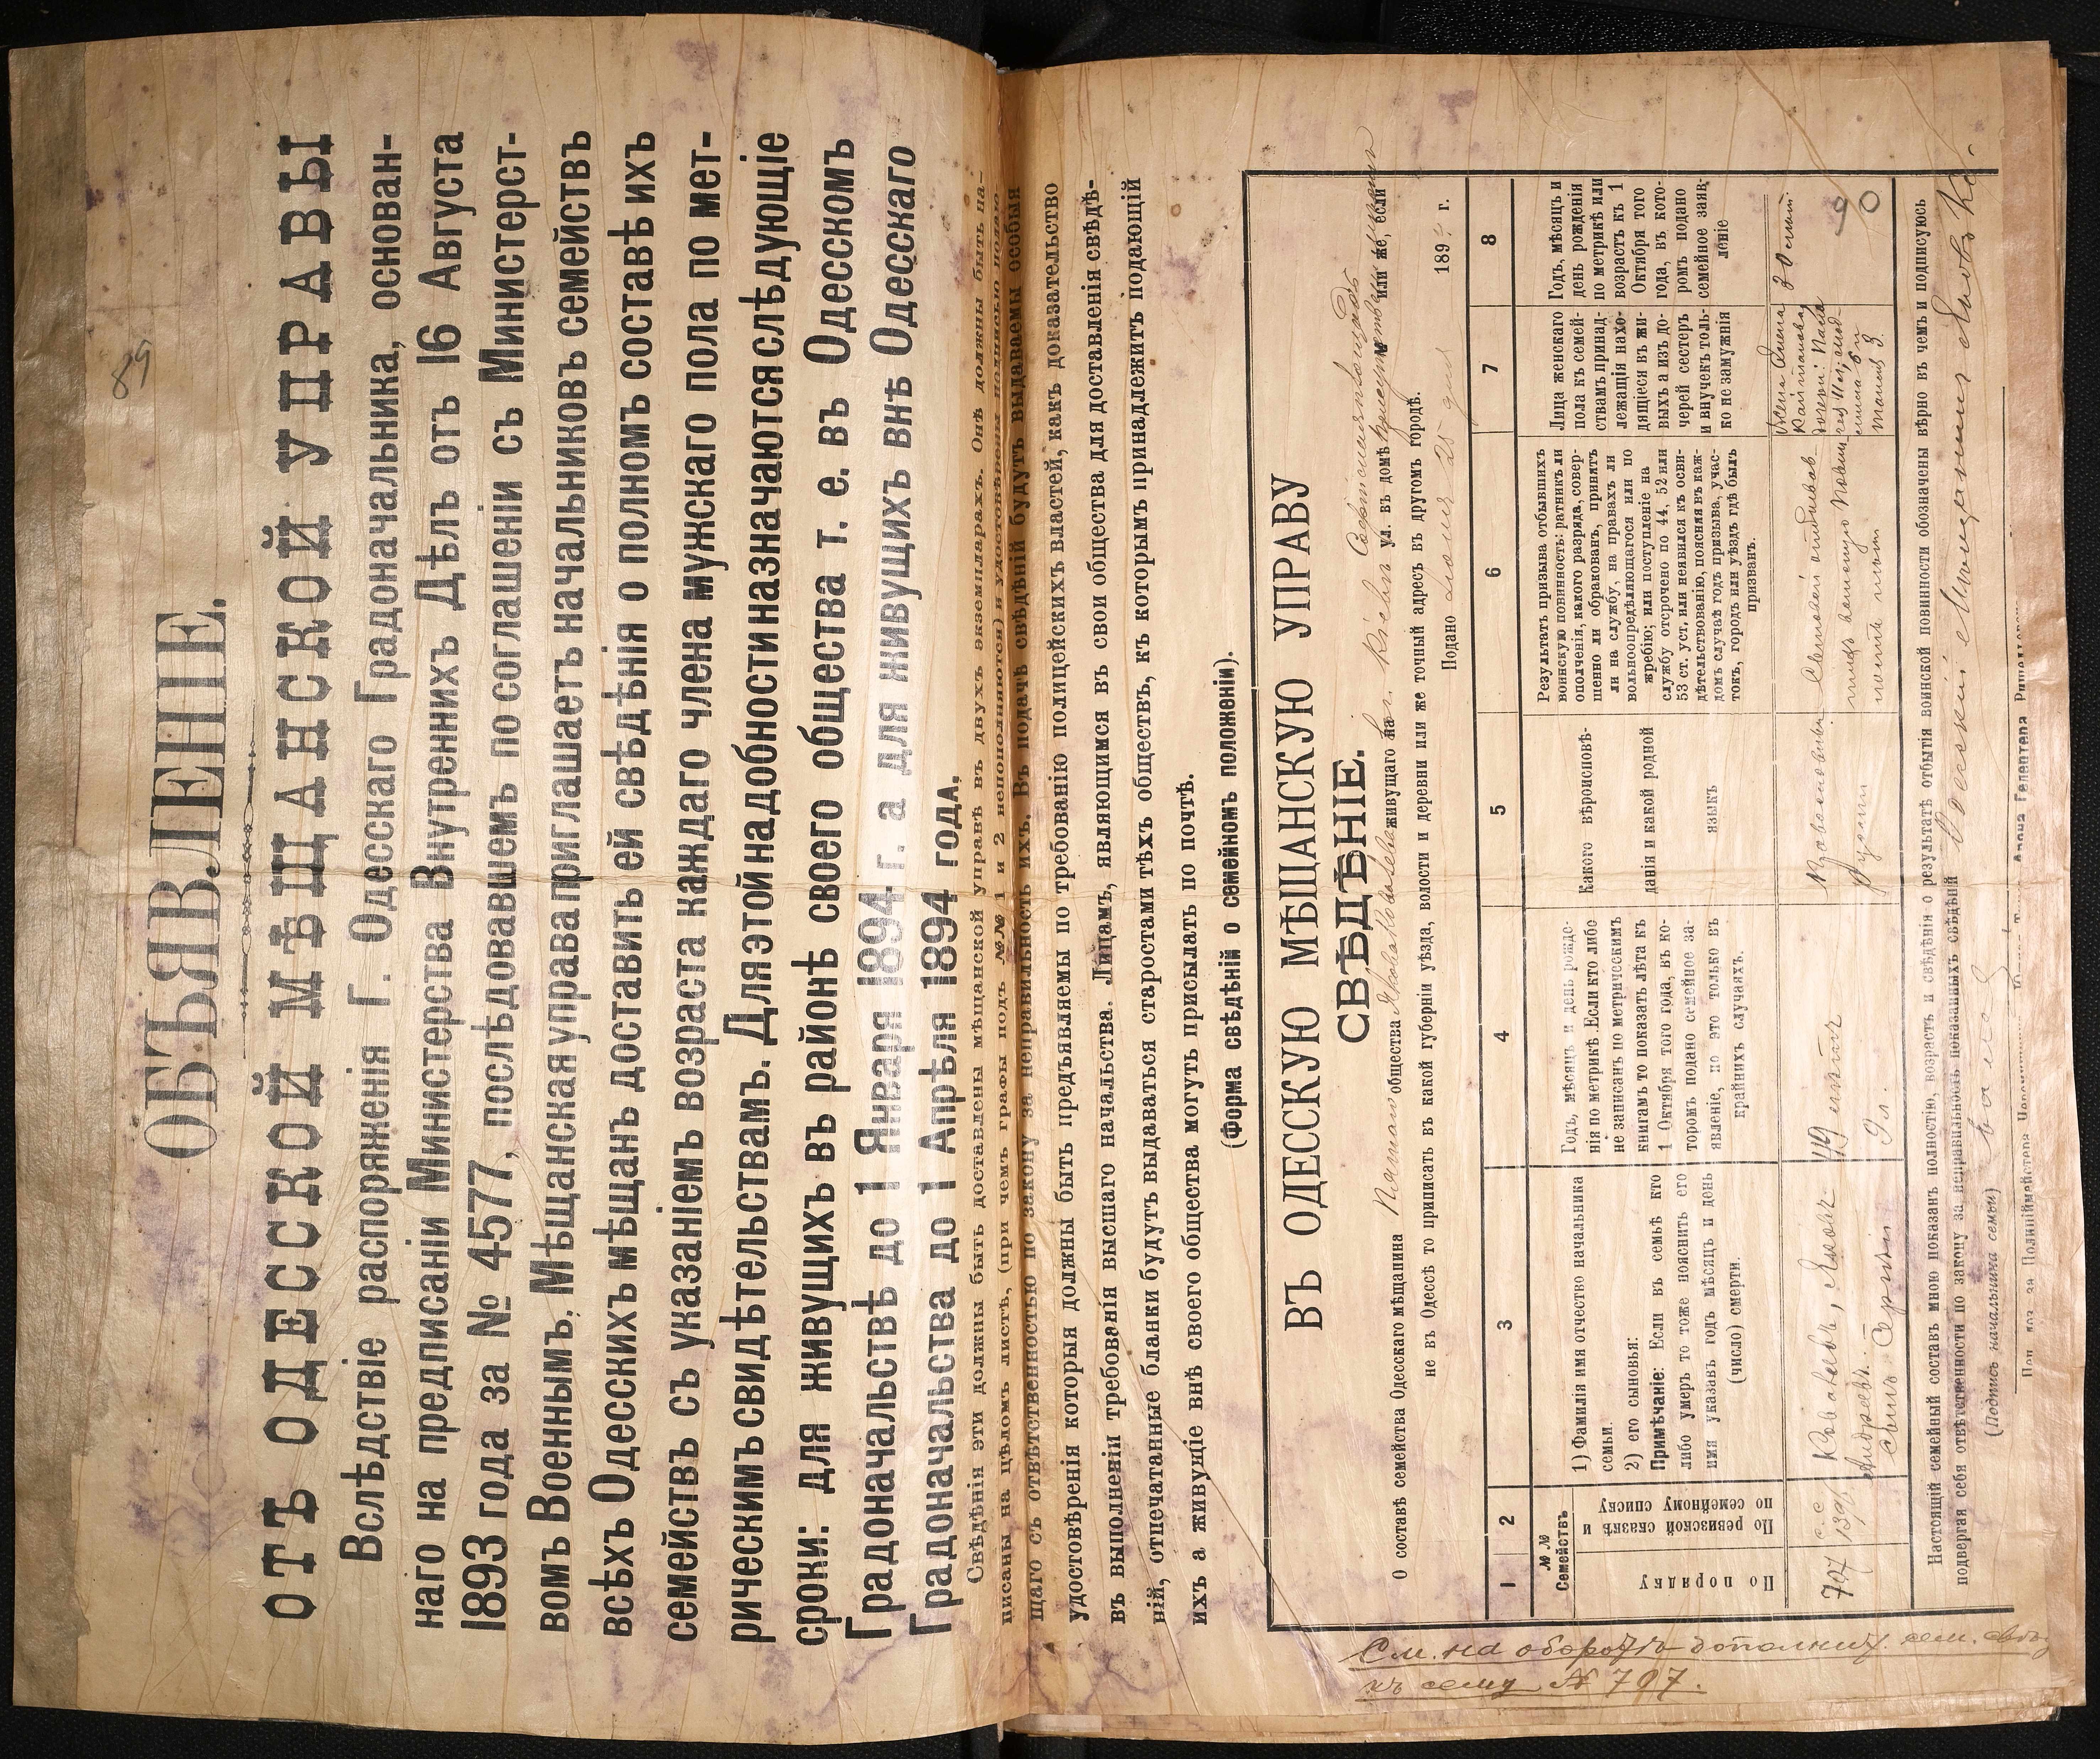 89
ОБЪЯВЛЕНІЕ.
ОТЪ ОДЕССКОЙ МѢЩАНСКОЙ УПРАВЫ
Вслѣдствіе распоряженія Г. Одесскаго Градоначальника, основан-
наго на предписаніи Министерства Внутреннихъ Дѣлъ отъ 16 Августа
1893 года за № 4577, послѣдовавшемъ по соглашенію съ Министерст-
вомъ Военнымъ, Мѣщанская управа приглашаетъ начальниковъ семействъ
всѣхъ Одесскихъ мѣщанъ доставить ей свѣдѣнія о полномъ составѣ ихъ
семействъ съ указаніемъ возраста каждаго члена мужскаго пола по мет-
рическимъ свидѣтельствамъ. Для этой надобности назначаются слѣдующіе
сроки: для живущихъ въ районѣ своего общества т. е. въ Одесскомъ
Градоначальствѣ до 1 Января 1894 г. а для живущихъ внѣ Одесскаго
Градоначальства до 1 Апрѣля 1894 года.
Свѣдѣнія эти должны быть доставлены мѣщанской управѣ въ двухъ экземплярахъ. Онѣ должны быть на-
писаны на цѣломъ листѣ, (при чемъ графы подъ №№ 1 и 2 непополняются) и удостовѣрены подписью подаю-
щаго съ отвѣтственностью по закону за неправильность ихъ. Въ подачѣ свѣдѣній будутъ выдаваемы особыя
удостовѣренія которыя должны быть предъявляемы по требованію полицейскихъ властей, какъ доказательство
въ выполненіи требованія высшаго начальства. Лицамъ, являющимся въ свои общества для доставленія свѣдѣ-
ній, отпечатанные бланки будутъ выдаваться старостами тѣхъ обществъ, къ которымъ принадлежитъ подающій
ихъ а живущіе внѣ своего общества могутъ присылать по почтѣ.
(Форма свѣдѣній о семейномъ положеніи).
ВЪ ОДЕССКУЮ МѢЩАНСКУЮ УПРАВУ
СВѢДѢНІЕ.
О составѣ семейства Одесскаго мѣщанина общества Якова Ковалева живущаго на г. Кіевъ ул. въ домѣ № или же, если
не въ Одессѣ то приписать въ какой губерніи уѣзда, волости и деревни или же точный адресъ въ другомъ городѣ.
Подано 25 дня 189 г.
1 2 3 4 5 6 7 8
№ № Семействъ
По порядку
По ревизской сказкѣ и по семейному списку
1) Фамилія имя отчество начальника
семьи.
2) его сыновья:
Примѣчаніе: Если въ семьѣ кто
либо умеръ то тоже пояснить его
имя указавъ годъ мѣсяцъ и день
(число) смерти.
Годъ, мѣсяцъ и день рожде-
нія по метрикѣ. Если кто либо
не записанъ по метрическимъ
книгамъ то показать лѣта къ
1 Октября того года, въ ко-
торомъ подано семейное за-
явленіе, но это только въ
крайнихъ случаяхъ.
Какого вѣроисповѣ-
данія и какой родной
языкъ
Результатъ призыва отбывшихъ
воинскую повинность: ратникъ ли
ополченія, какого разряда, совер-
шенно ли обракованъ, принятъ
ли на службу, на правахъ ли
вольноопредѣляющагося или по
жребію; или поступленіе на
службу отсрочено по 44, 52 или
53 ст. уст. или неявился къ осви-
дѣтельствованію, поясняя въ каж-
домъ случаѣ годъ призыва, учас-
токъ, городъ или уѣздъ гдѣ былъ
призванъ.
Лица женскаго
пола къ семей-
ствамъ принад-
лежащія нахо-
дящіеся въ жи-
выхъ а изъ до-
черей сестеръ
и внучекъ толь-
ко не замужнія
Годъ, мѣсяцъ и
день рожденія
по метрикѣ или
возрастъ къ 1
Октября того
года, въ кото-
ромъ подано
семейное заяв-
леніе
797
Ковалевъ, Яковъ
Андреевъ
сынъ Сергѣй
49 лѣтъ
9 л.
Православный
Жена Анна
30 лѣтъ
Настоящій семейный составъ мною показанъ полностію, возрастъ и свѣдѣнія о результатѣ отбытія воинской повинности обозначены вѣрно въ чемъ и подписуюсь
подвергая себя отвѣтственности по закону за неправильность показанныхъ свѣдѣній Одесскій Мещанинъ Яковъ Ко-
валев
(Подпись начальника семьи)
См. на оборотѣ дополнит. сем. свѣд.
къ сему № 797.